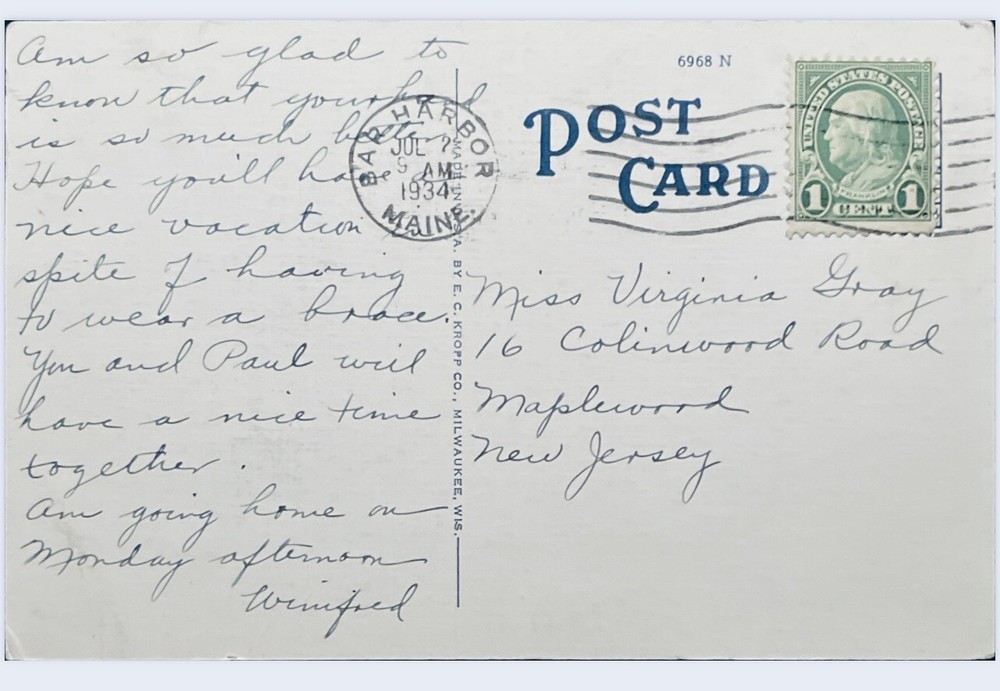 Am so glad to
know that your
is so much
Hope you'll have a
nice vacation in
spite of having
to wear a brace.
You and Paul will
have a nice time
together.
Am going home on
Monday afternoon
Winifred
BAR HARBOR
JUL
9 AM
1934
MAINE.
MADE IN U.S.A. BY E. C. KROPP CO., MILWAUKEE, WIS.
6968 N
POST
CARD
UNITED STATES POSTAGE
FRANKLIN
1 CENT 1
Miss Virginia Gray
16 Colinwood Road
Maplewood
New Jersey